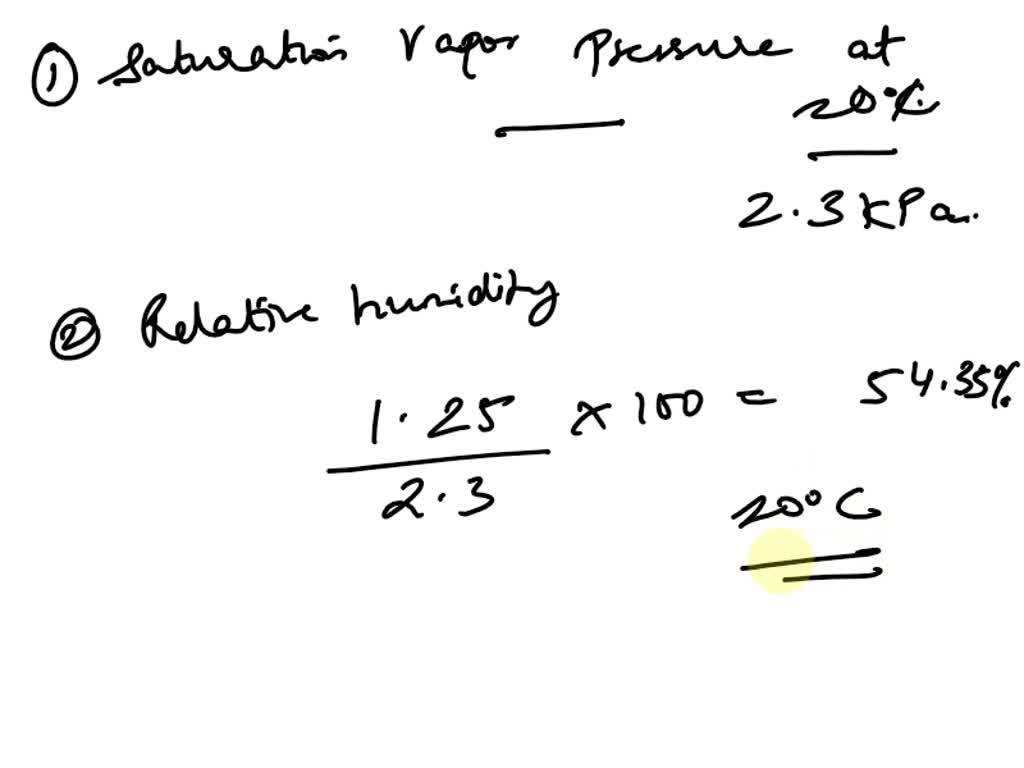 ① Saturation Vapor Pressure at
20°C
2.3 kPa.
② Relative humidity
1.25
2.3
× 100 = 54.35%
20°C